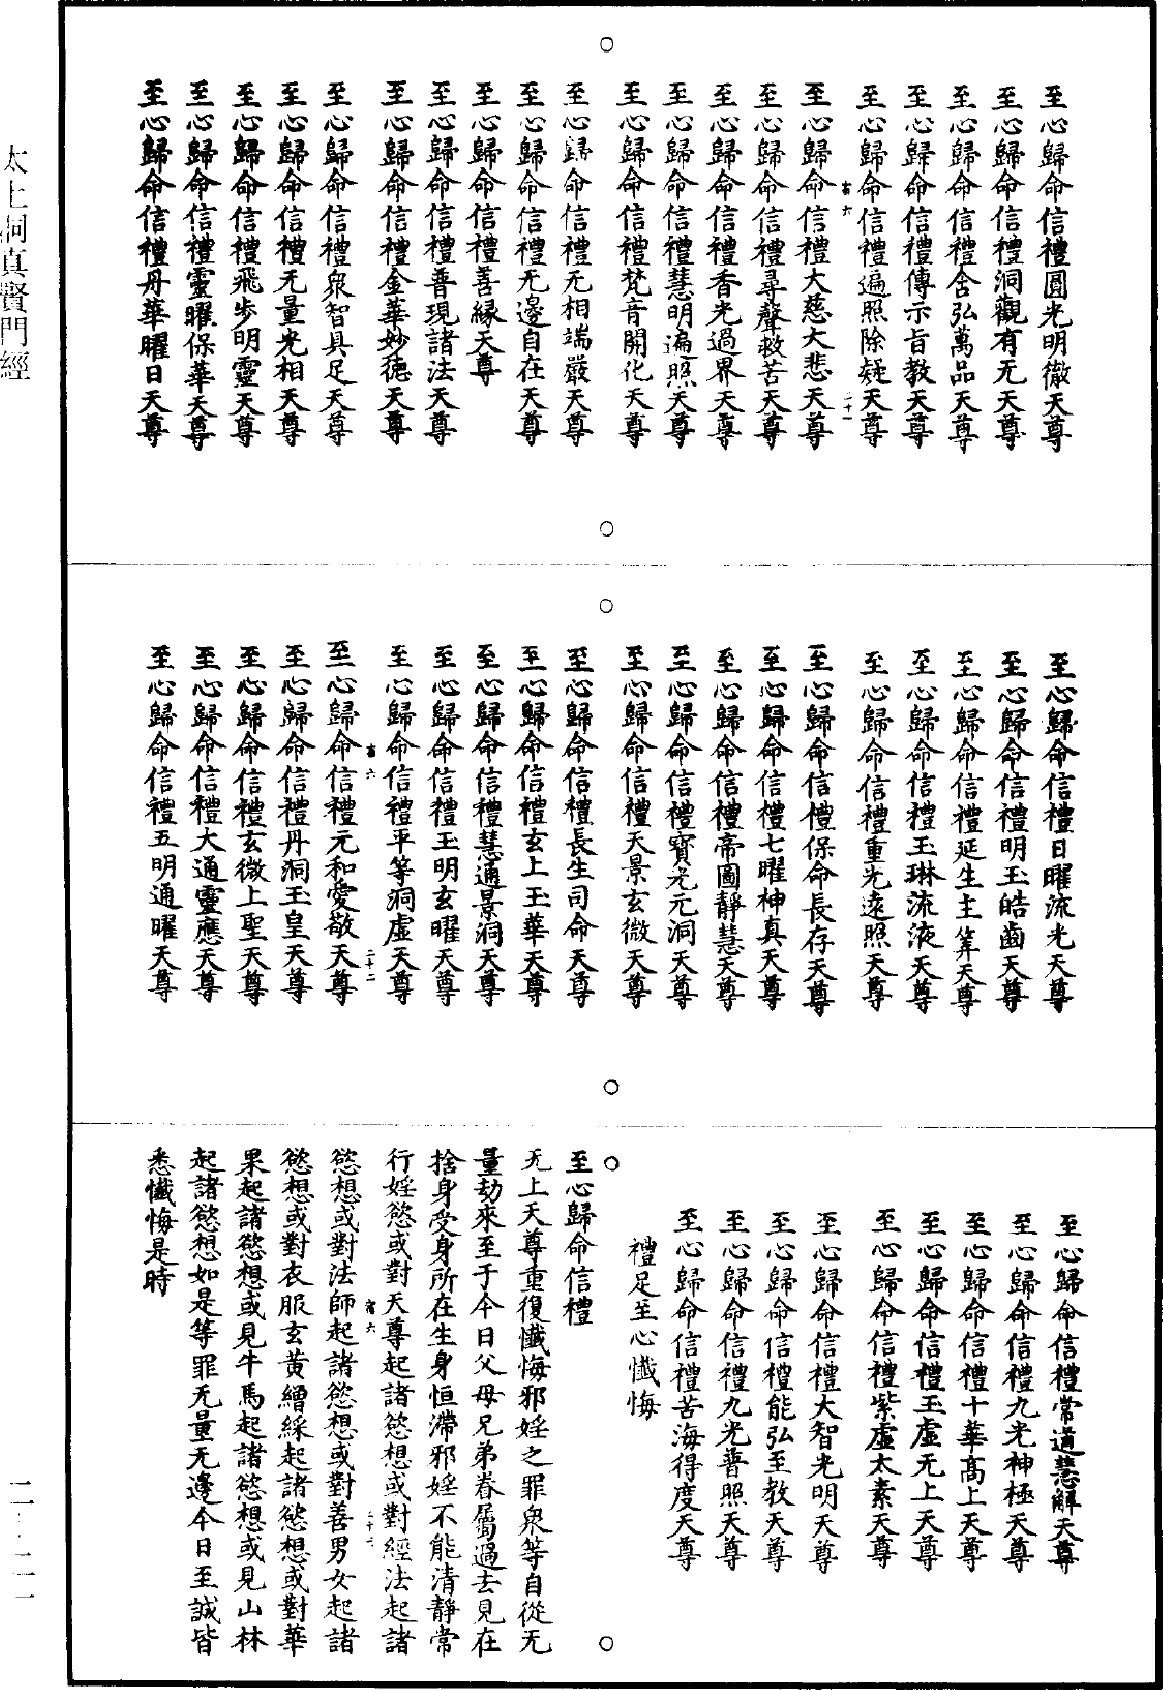 至心歸命信禮圓光明徹天尊
至心歸命信禮洞觀有无天尊
至心歸命信禮含弘萬品天尊
至心歸命信禮傳示旨教天尊
至心歸命信禮遍照除疑天尊
至心歸命信禮大慈大悲天尊
至心歸命信禮尋聲救苦天尊
至心歸命信禮香光過界天尊
至心歸命信禮慧明遍照天尊
至心歸命信禮梵音開化天尊
至心歸命信禮无相端嚴天尊
至心歸命信禮无邊自在天尊
至心歸命信禮善緣天尊
至心歸命信禮普現諸法天尊
至心歸命信禮金華妙德天尊
至心歸命信禮衆智具足天尊
至心歸命信禮无量光相天尊
至心歸命信禮飛步明靈天尊
至心歸命信禮靈曜保華天尊
至心歸命信禮丹華曜日天尊
至心歸命信禮日曜流光天尊
至心歸命信禮明玉皓齒天尊
至心歸命信禮延生主筭天尊
至心歸命信禮玉琳流液天尊
至心歸命信禮重光遠照天尊
至心歸命信禮保命長存天尊
至心歸命信禮七曜神真天尊
至心歸命信禮帝圖靜慧天尊
至心歸命信禮寶光元洞天尊
至心歸命信禮天景玄微天尊
至心歸命信禮長生司命天尊
至心歸命信禮玄上玉華天尊
至心歸命信禮慧通景洞天尊
至心歸命信禮玉明玄曜天尊
至心歸命信禮平等洞虛天尊
至心歸命信禮元和愛敬天尊
至心歸命信禮丹洞玉皇天尊
至心歸命信禮玄微上聖天尊
至心歸命信禮大通靈應天尊
至心歸命信禮五明通曜天尊
至心歸命信禮常道慧解天尊
至心歸命信禮九光神極天尊
至心歸命信禮十華高上天尊
至心歸命信禮玉虛无上天尊
至心歸命信禮紫虛太素天尊
至心歸命信禮大智光明天尊
至心歸命信禮能弘至教天尊
至心歸命信禮九光普照天尊
至心歸命信禮苦海得度天尊
禮足至心懺悔
至心歸命信禮
无上天尊重復懺悔邪婬之罪衆等自從无
量劫來至于今日父母兄弟眷屬過去見在
捨身受身所在生身恒滯邪婬不能清靜常
行婬慾或對天尊起諸慾想或對經法起諸
慾想或對法師起諸慾想或對善男女起諸
慾想或對衣服玄黃繒綵起諸慾想或對華
果起諸慾想或見牛馬起諸慾想或見山林
起諸慾想如是等罪无量无邊今日至誠皆
悉懺悔是時
太上洞真賢門經